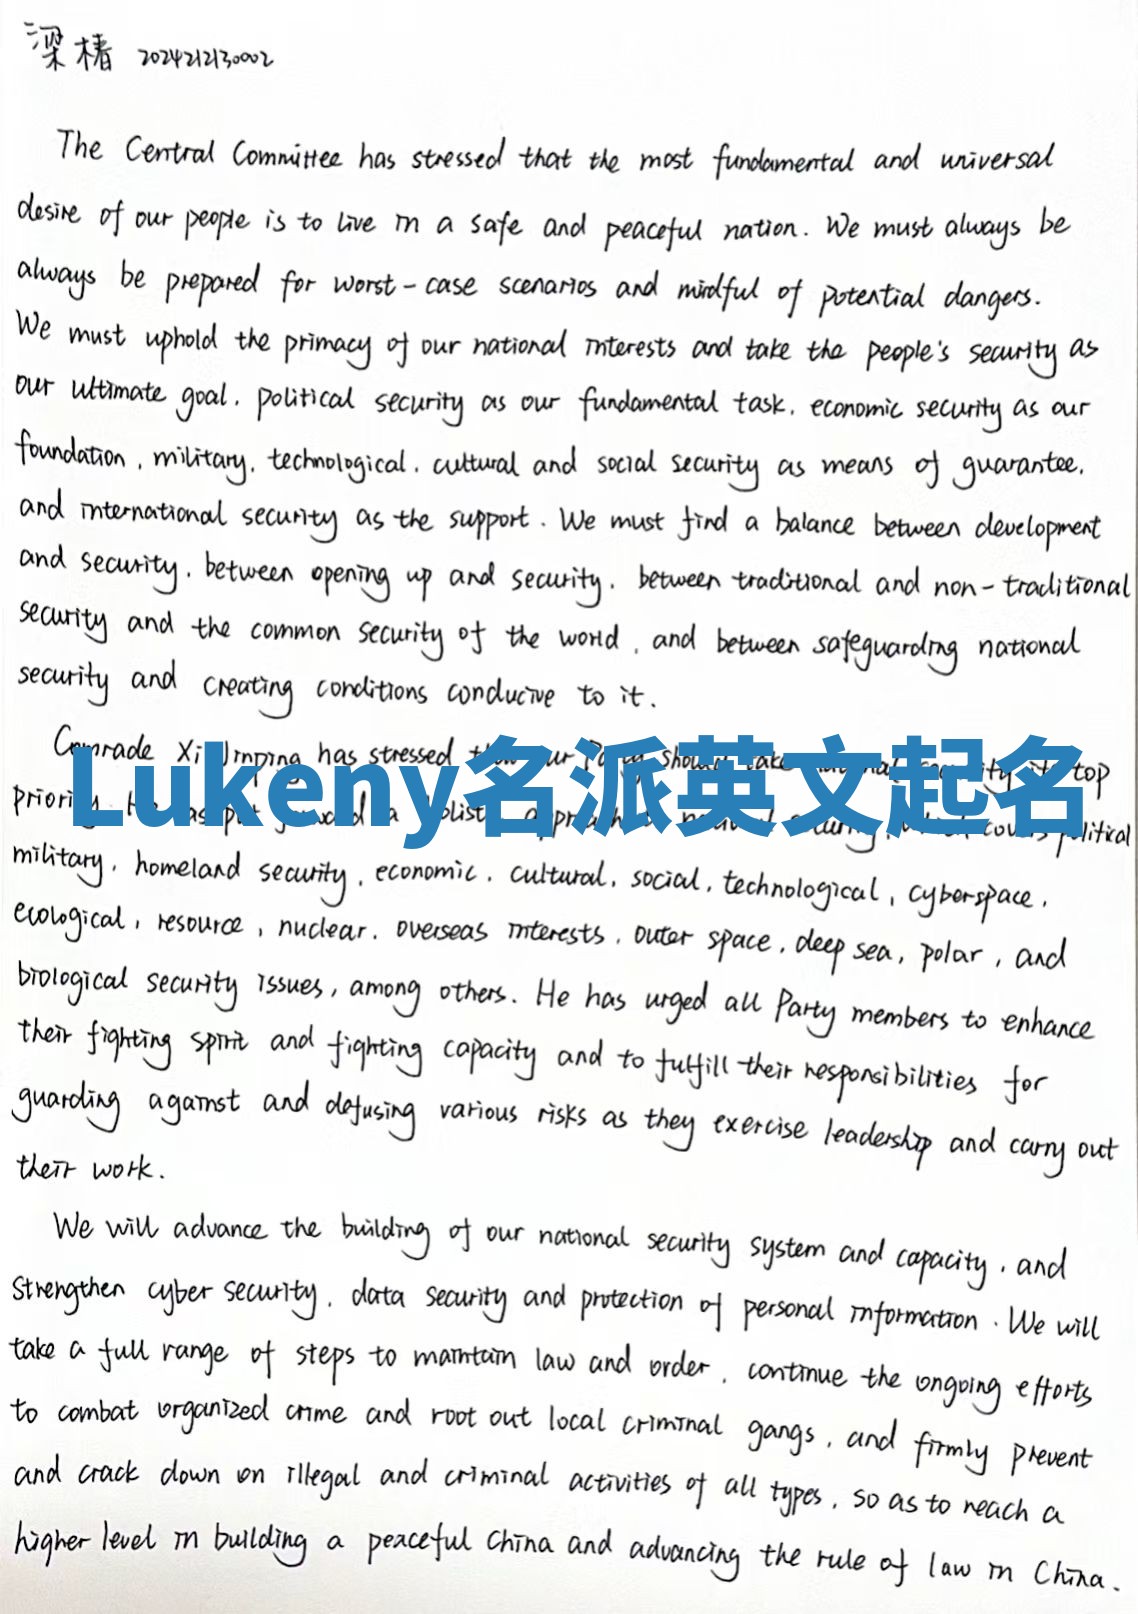 梁椿 2024212130002
The Central Committee has stressed that the most fundamental and universal
desire of our people is to live in a safe and peaceful nation. We must always be
always be prepared for worst-case scenarios and mindful of potential dangers.
We must uphold the primacy of our national interests and take the people's security as
our ultimate goal, political security as our fundamental task, economic security as our
foundation, military, technological, cultural and social security as means of guarantee,
and international security as the support. We must find a balance between development
and security, between opening up and security, between traditional and non-traditional
security and the common security of the world, and between safeguarding national
security and creating conditions conducive to it.
Comrade Xi Jinping has stressed our Party should take top
Lukeny名派英文起名
a covers political
military, homeland security, economic, cultural, social, technological, cyberspace,
ecological, resource, nuclear, overseas interests, outer space, deep sea, polar, and
biological security issues, among others. He has urged all Party members to enhance
their fighting spirit and fighting capacity and to fulfill their responsibilities for
guarding against and defusing various risks as they exercise leadership and carry out
their work.
We will advance the building of our national security system and capacity, and
strengthen cyber security, data security and protection of personal information. We will
take a full range of steps to maintain law and order, continue the ongoing efforts
to combat organized crime and root out local criminal gangs, and firmly prevent
and crack down on illegal and criminal activities of all types, so as to reach a
higher level in building a peaceful China and advancing the rule of law in China.